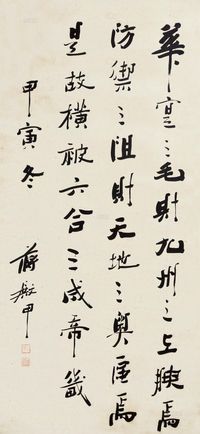 華寔之毛則九州之上腴焉
防禦之阻則天地之奧區焉
是故橫被六合三成帝畿
甲寅冬
蔣甲